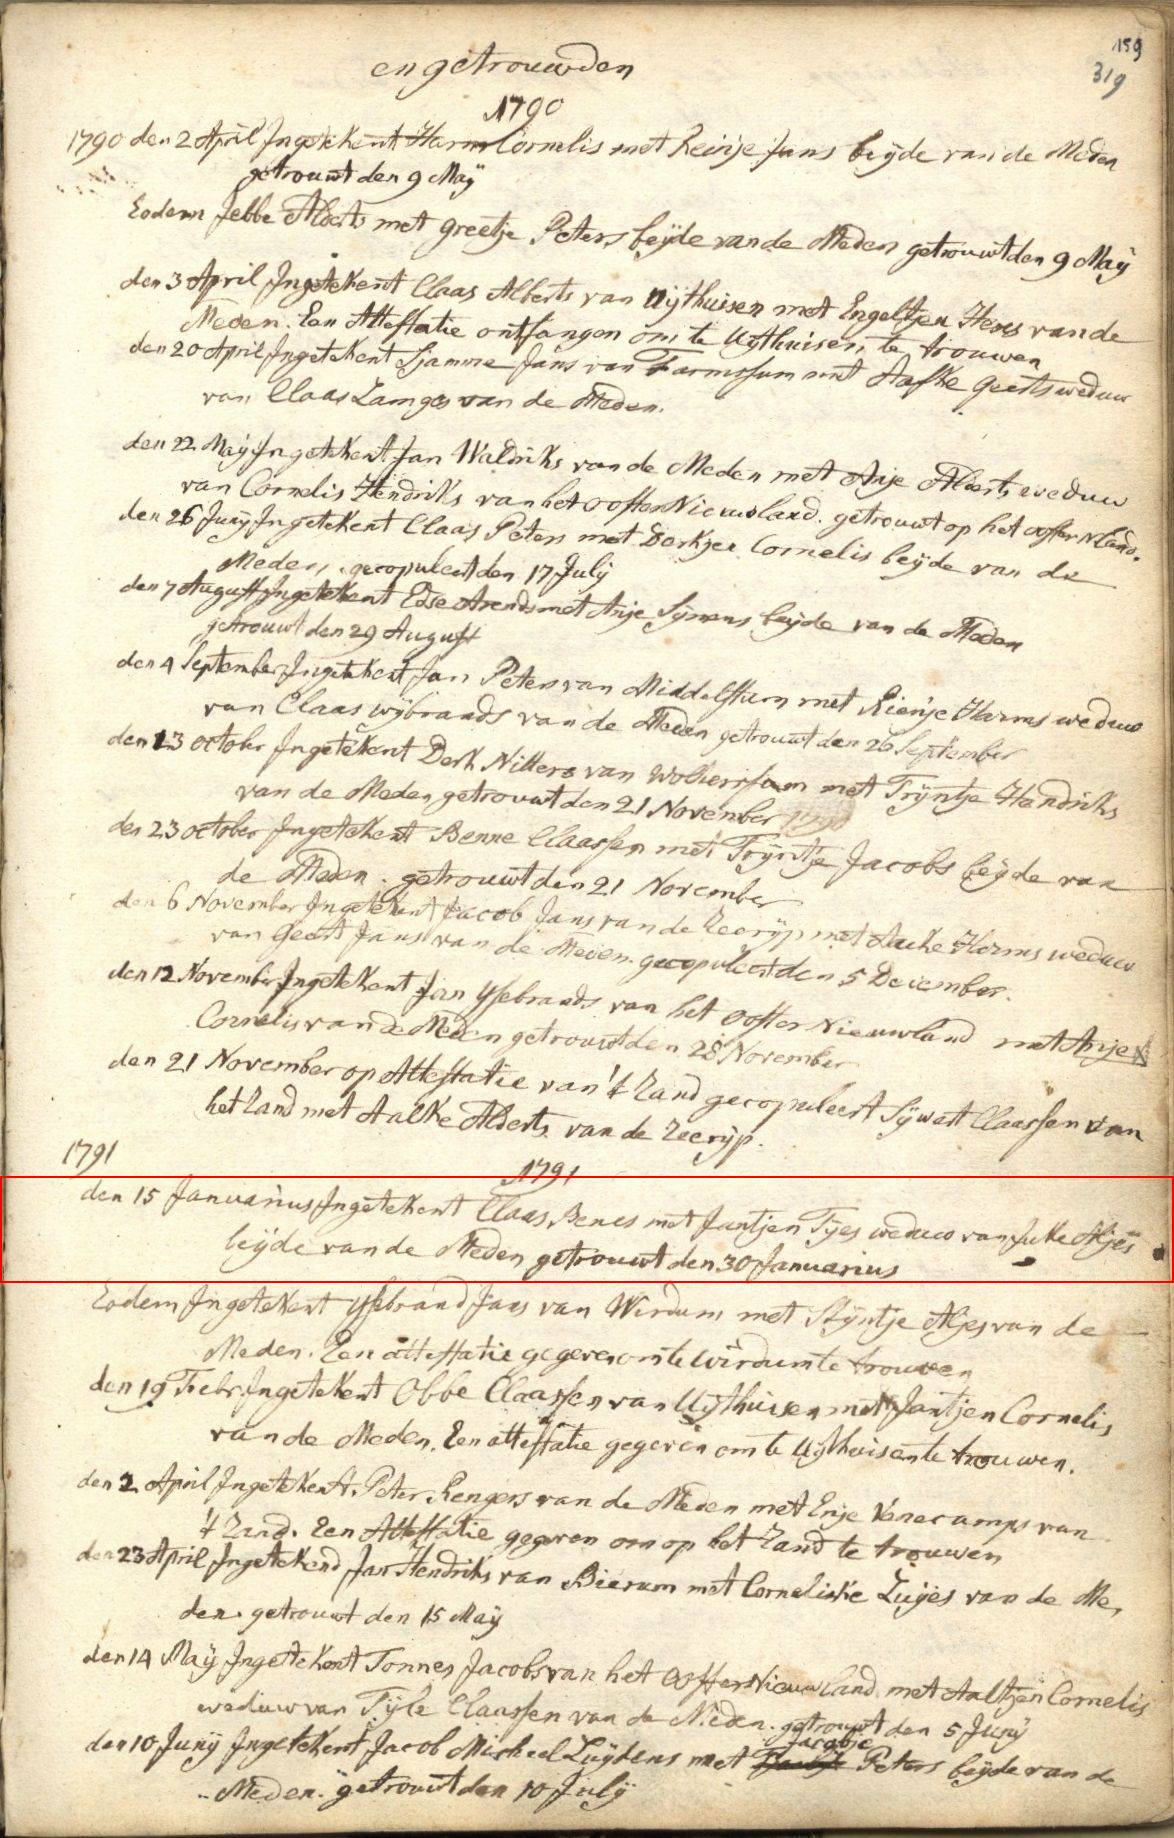 159
319
en getrouwden
1790
1790 den 2 April Ingetekent Harm Cornelis met Reinje Jans beijde van de Meden
getrouwt den 9 Maij
Eodem Jebbe Alberts met Greetje Peters beijde van de Meden getrouwt den 9 Maij
den 3 April Ingetekent Claas Alberts van Uijthuisen met Engeltjen van de
Meden. Een Attestatie ontfangen om te Uijthuisen te trouwen
den 20 April Ingetekent Sjamme Jans van Farmssum met Aafke Geerts weduw
van Claas Lamges van de Meden.
den 22 Maij Ingetekent Jan Waldriks van de Meden met Anje Alberts weduw
van Cornelis Hendriks van het ooster Nieuwland. getrouwt op het ooster Nland.
den 26 Junij Ingetekent Claas Peters met Derkjen Cornelis beijde van de
Meden, gecopuleert den 17 Julij
den 7 August Ingetekent Edse Arends met Anje Sijmens beijde van de Meden
getrouwt den 29 August
den 4 September Ingetekent Jan Peters van Middelstum met Rienje Harms weduw
van Claas Wijbrands van de Meden getrouwt den 26 September
den 13 october Ingetekent Derk Nitters van Wolterssum met Trijntje Hendriks
van de Meden getrouwt den 21 November
den 23 october Ingetekent Benne Claassen met Trijntje Jacobs beijde van
de Meden. getrouwt den 21 November
den 6 November Ingetekent Jacob Jans van de Zeerijp met Auke Harms weduw
van Geert Jans van de Meden. gecopuleert den 5 December.
den 12 November Ingetekent Jan Ijsebrands van het ooster Nieuwland met Anje
Cornelis van de Meden getrouwt den 28 November
den 21 November op Attestatie van 't Zand gecopuleert Sijwert Claassen van
het Zand met Aalke Alderts van de Zeerijp.
1791
1791
den 15 Januarius Ingetekent Claas Benes met Jantjen Tijes weduw van Fukke Aljes
beijde van de Meden getrouwt den 30 Januarius
Eodem Ingetekent Ijsebrand Jans van Wirdum met Stijntje Aljes van de
Meden. Een attestatie gegeven om te Wirdum te trouwen
den 19 Febr. Ingetekent Obbe Claassen van Uijthuisen met Jantjen Cornelis
van de Meden. Een attestatie gegeven om te Uijthuisen te trouwen.
den 2 April Ingetekent Peter Rengers van de Meden met Enje Venecamps van
't Zand. Een Attestatie gegeven om op het Zand te trouwen
den 23 April Ingetekend Jan Hendriks van Bierum met Corneliske Luijes van de Me,
den. getrouwt den 15 Maij
den 14 Maij Ingetekent Tonnes Jacobs van het Ooster Nieuwland met Aaltjen Cornelis
weduw van Tijle Claassen van de Meden. getrouwt den 5 Junij
Jacobje
den 10 Junij Ingetekent Jacob Micheel Luijdens met Peters beijde van de
Meden. getrouwt den 10 Julij